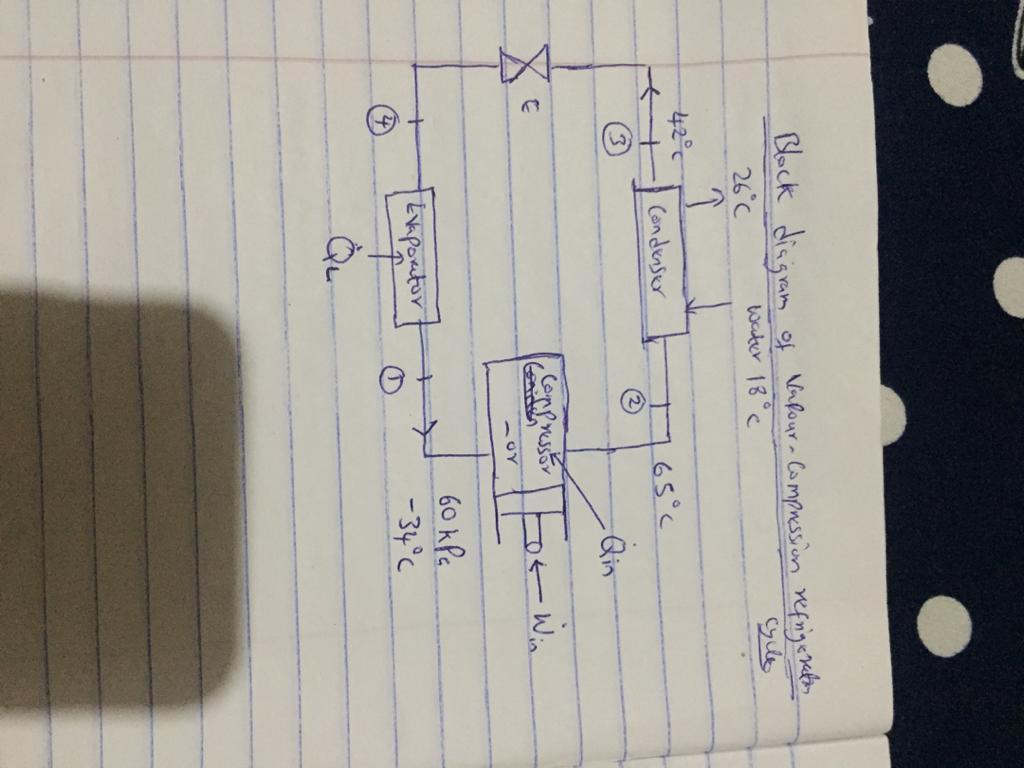 Block diagram of Vapour-Compression refrigeration
cycle
26°C
Water 18°C
42°C
Condenser
65°C
③
②
Q̇in
E
Compressor
-or
Ẇin
60 kPa
-34°C
④
Evaporator
①
Q̇L